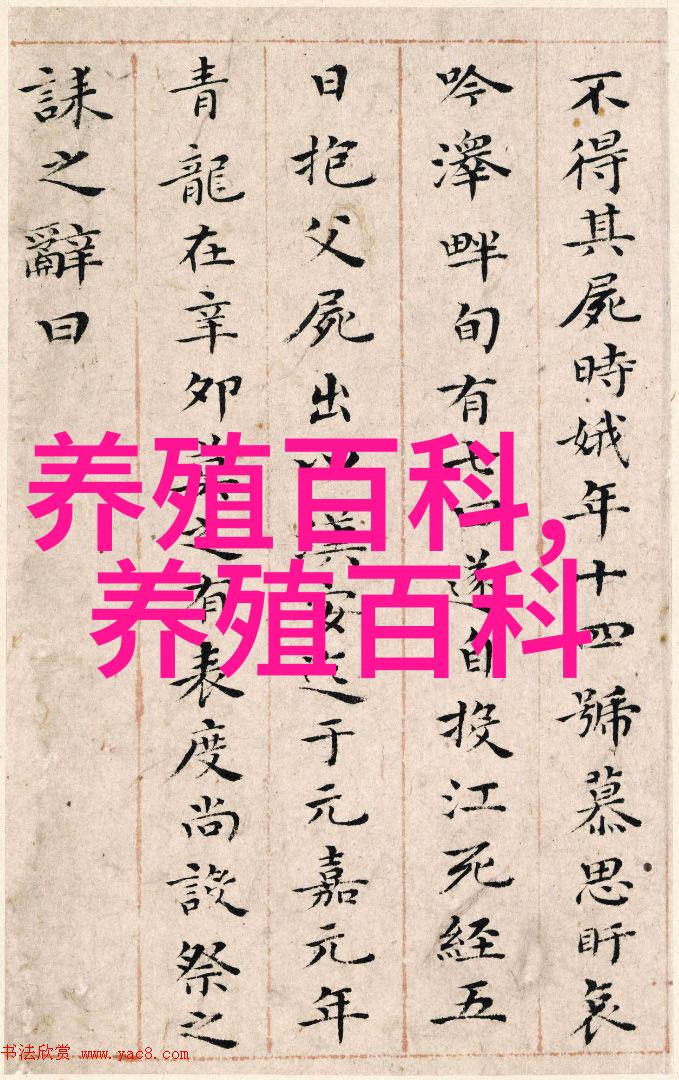 不得其屍時娥年十四號慕思盱哀
吟澤畔旬有七日遂自投江死經五
日抱父屍出以漢安迄于元嘉元年
青龍在辛卯莫之有表度尚設祭之
誄之辭曰
养殖百科,
养殖百科
书法欣赏 www.yac8.com